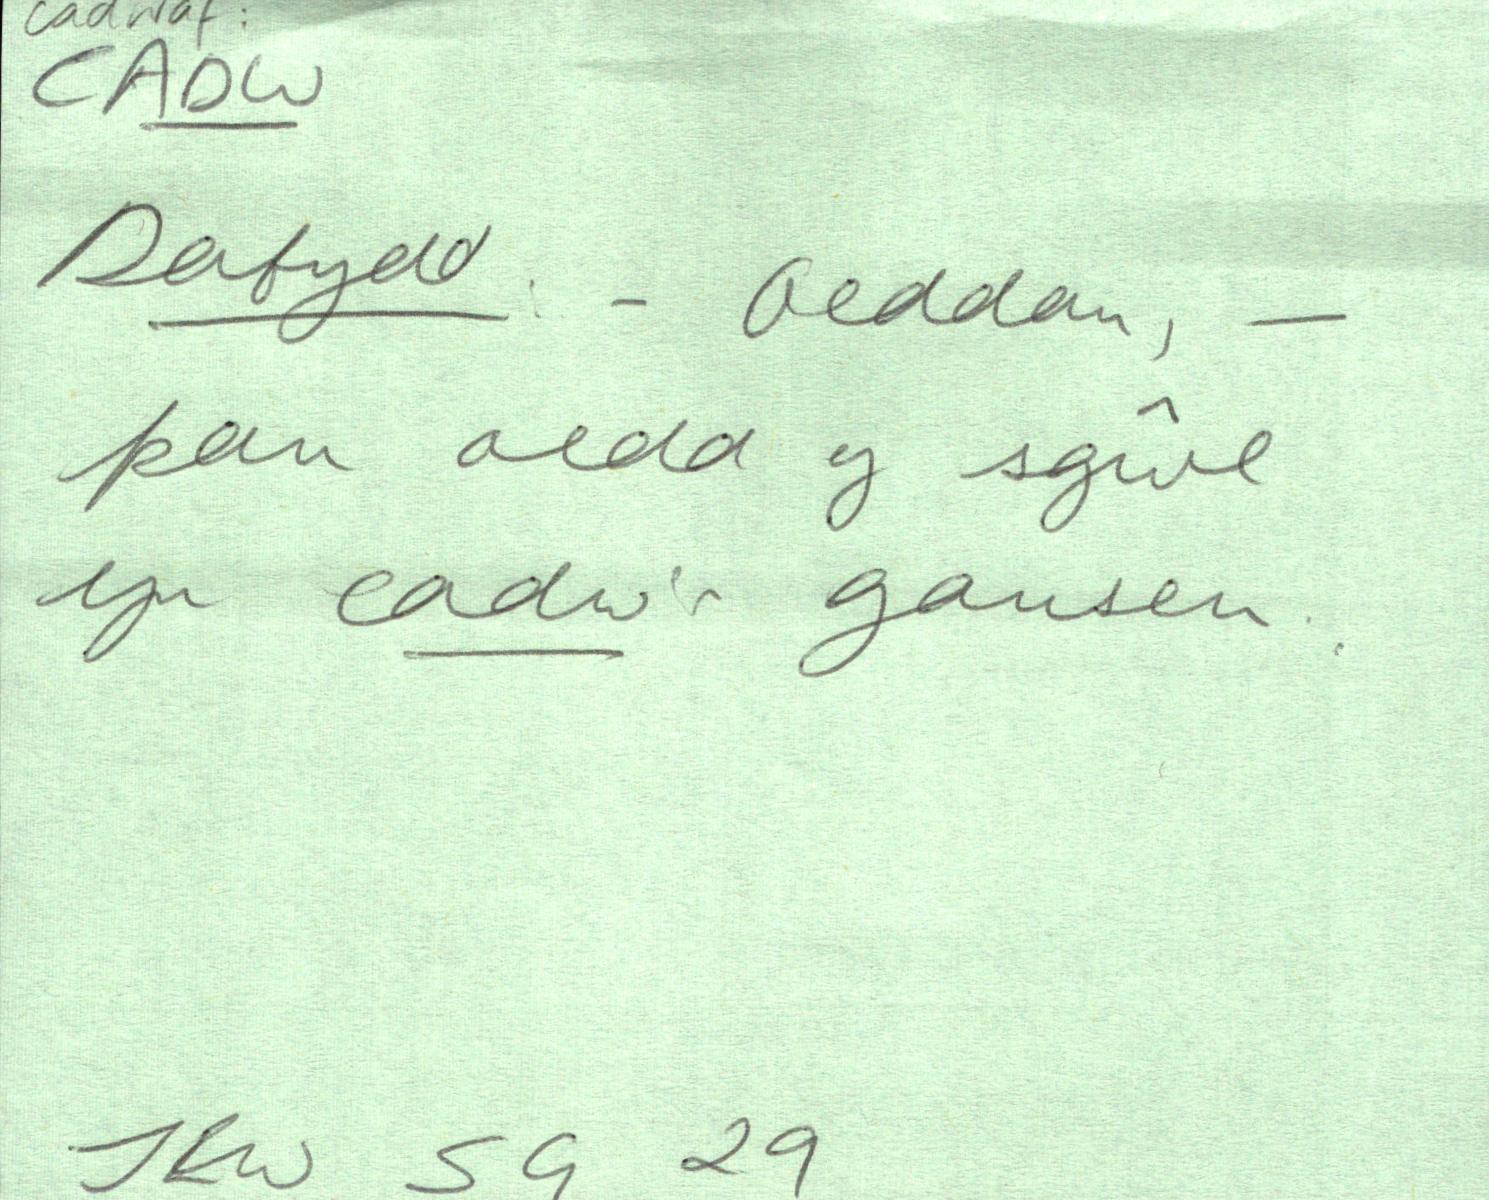 cadwaf:
CADW
Dafydd. - Oeddan, —
pan oedd y sgŵl
yn cadw'r gansen.
JRW SG 29